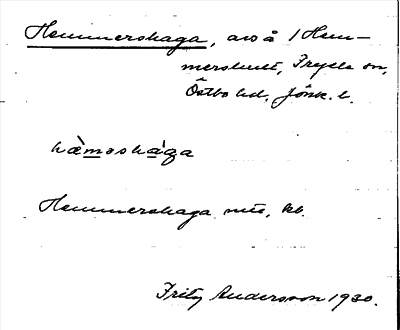 Hemmershaga, avs å 1 Hem-
mershult, Tryella sn,
Östbo hd, Jönk. l.
hæ̀mashàga
Hemmershaga mtl, kb.
Fritz Andersson 1930.